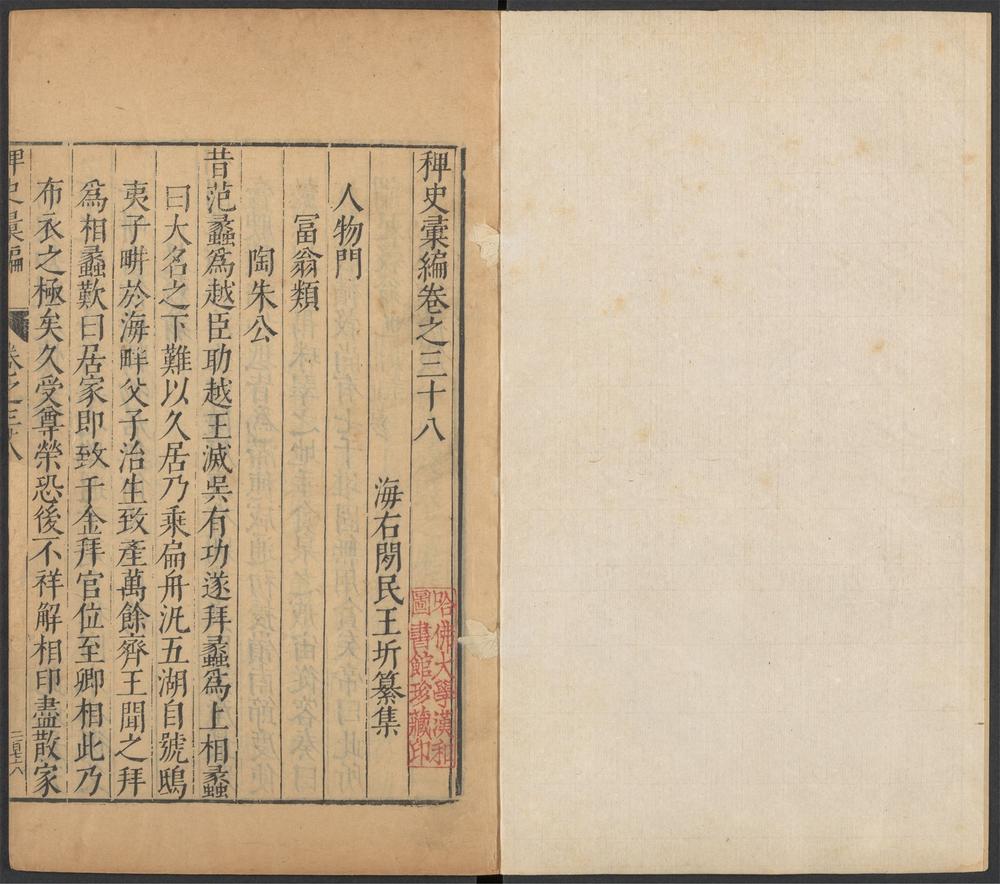 稗史彙編卷之三十八
海右閒民王圻纂集
哈佛大學漢和
圖書館珍藏印
人物門
冨翁類
陶朱公
昔范蠡爲越臣助越王滅吳有功遂拜蠡爲上相蠡
曰大名之下難以久居乃乘扁舟汎五湖自號鴟
夷子畊於海畔父子治生致產萬餘齊王聞之拜
爲相蠡歎曰居家即致千金拜官位至卿相此乃
布衣之極矣久受尊榮恐後不祥解相印盡散家
稗史彙編 卷之三十八